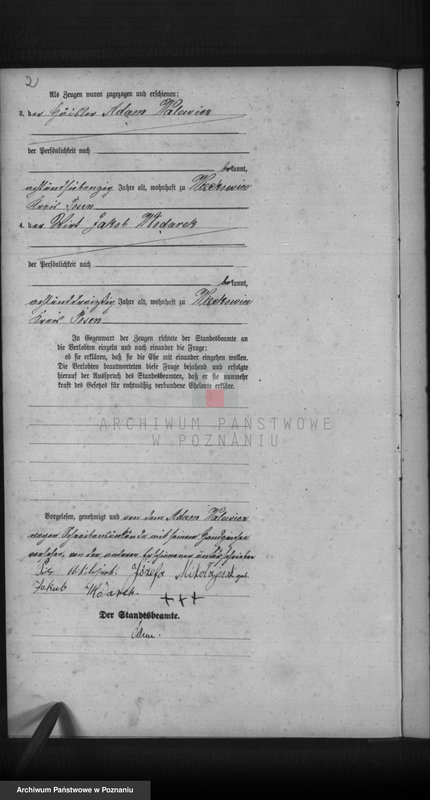 2
Als Zeugen waren zugezogen und erschienen:
3. der Häusler Adam Walewicz
der Persönlichkeit nach
bekannt,
achtundsiebenzig Jahre alt, wohnhaft zu
Kreis Posen
4. der Wirt Jakob Wlodarek
der Persönlichkeit nach
bekannt,
achtunddreißig Jahre alt, wohnhaft zu
Kreis Posen
In Gegenwart der Zeugen richtete der Standesbeamte an
die Verlobten einzeln und nach einander die Frage:
ob sie erklären, daß sie die Ehe mit einander eingehen wollen.
Die Verlobten beantworteten diese Frage bejahend und erfolgte
hierauf der Ausspruch des Standesbeamten, daß er sie nunmehr
kraft des Gesetzes für rechtmäßig verbundene Eheleute erkläre.
ARCHIWUM PAŃSTWOWE
W POZNANIU
Vorgelesen, genehmigt und von dem Adam Walewicz
wegen Schreibensunkunde mit seinem Handzeichen
versehen, von den anderen Erschienenen unterschrieben
Józefa
Jakub
+++
Der Standesbeamte.
Archiwum Państwowe w Poznaniu